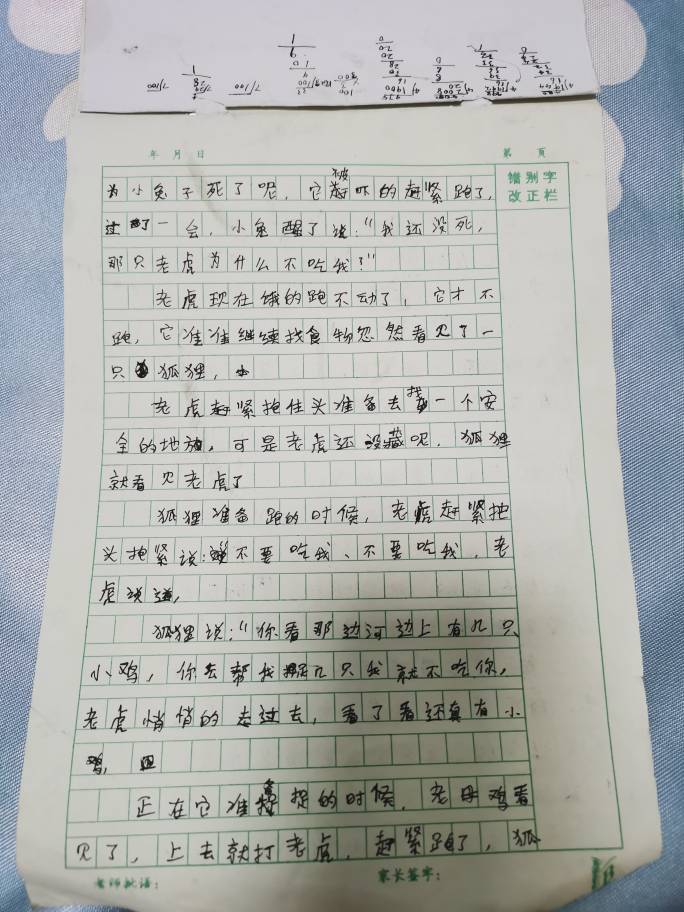 年 月 日
第 页
错别字
改正栏
为小兔子死了呢，它被吓的赶紧跑了，
过了一会，小兔醒了说："我还没死，
那只老虎为什么不吃我？"
老虎现在饿的跑不动了，它才不
跑，它准准继续找食物忽然看见了一
只狐狸，
老虎赶紧抱住头准备去找一个安
全的地放，可是老虎还没藏呢，狐狸
就看见老虎了
狐狸准备跑的时候，老虎赶紧抱
头抱紧说：不要吃我、不要吃我，老
虎说道，
狐狸说："你看那边河边上有几只
小鸡，你去帮我抓几只我就不吃你，
老虎悄悄的走过去，看了看还真有小
鸡，
正在它准备捉的时候，老母鸡看
见了，上去就打老虎，赶紧跑了，狐
老师批语：
家长签字：